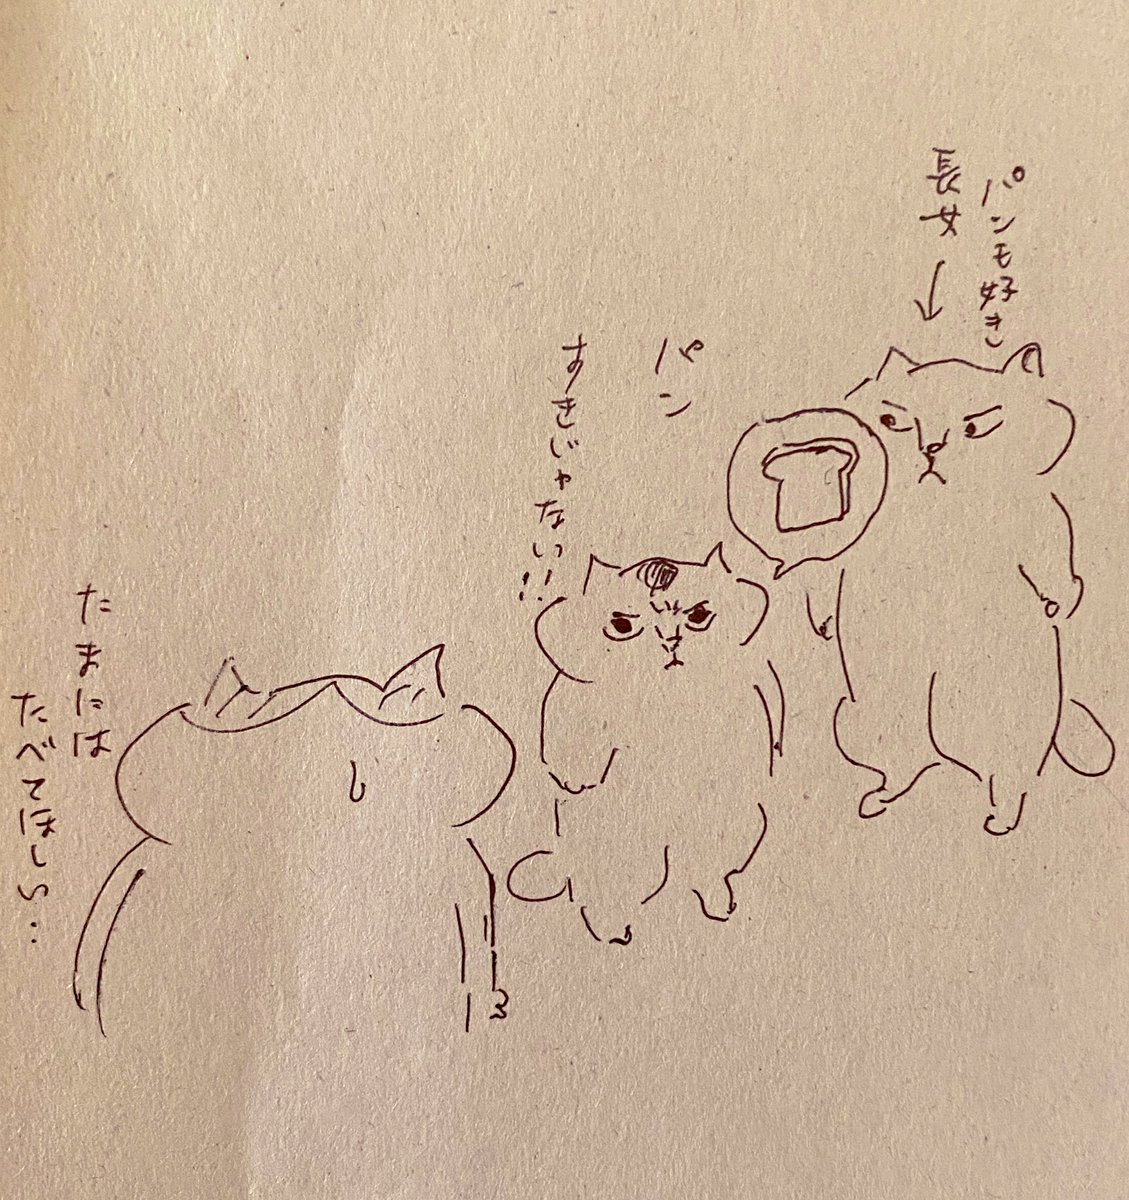 パンも好き
長女
パン
すきじゃない!!
たまには
たべてほしい..